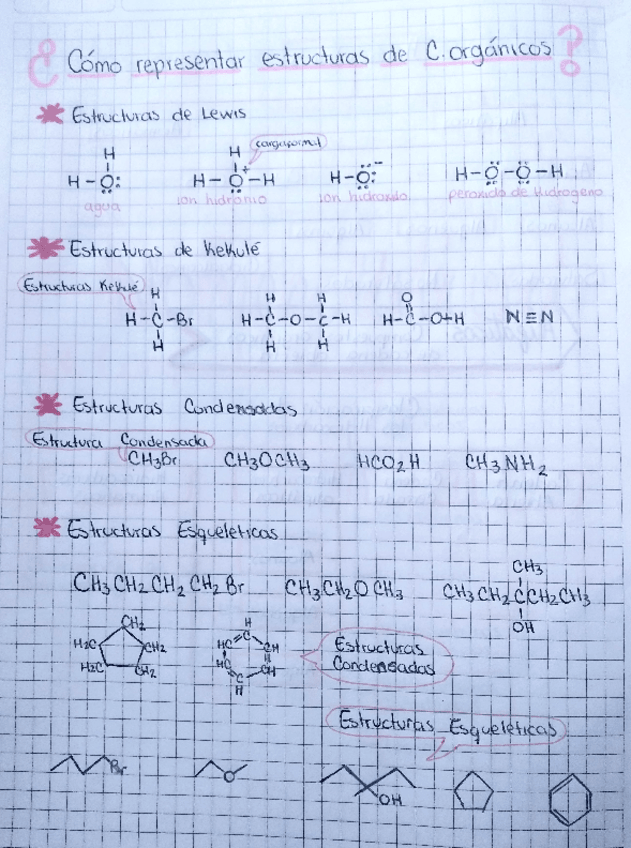 ¿Cómo representar estructuras de C. orgánicos?
Estructuras de Lewis
carga formal
H
H-O:
agua
H
H-O+-H
ion hidronio
H-O:-
ion hidroxido
H-O-O-H
peroxido de Hidrogeno
Estructuras de Kekulé
Estructuras Kekulé
H
H-C-Br
H
H H
H-C-O-C-H
H H
O
H-C-O-H
N≡N
Estructuras Condensadas
Estructura Condensada
CH3Br CH3OCH3 HCO2H CH3NH2
Estructuras Esqueleticas
CH3
CH3CH2CH2CH2Br CH3CH2OCH3 CH3CH2CCH2CH3
OH
CH2
H2C CH2
H2C CH2
H
C
HC CH
HC CH
C
H
Estructuras
Condensadas
Estructuras Esqueléticas
Br
O
OH